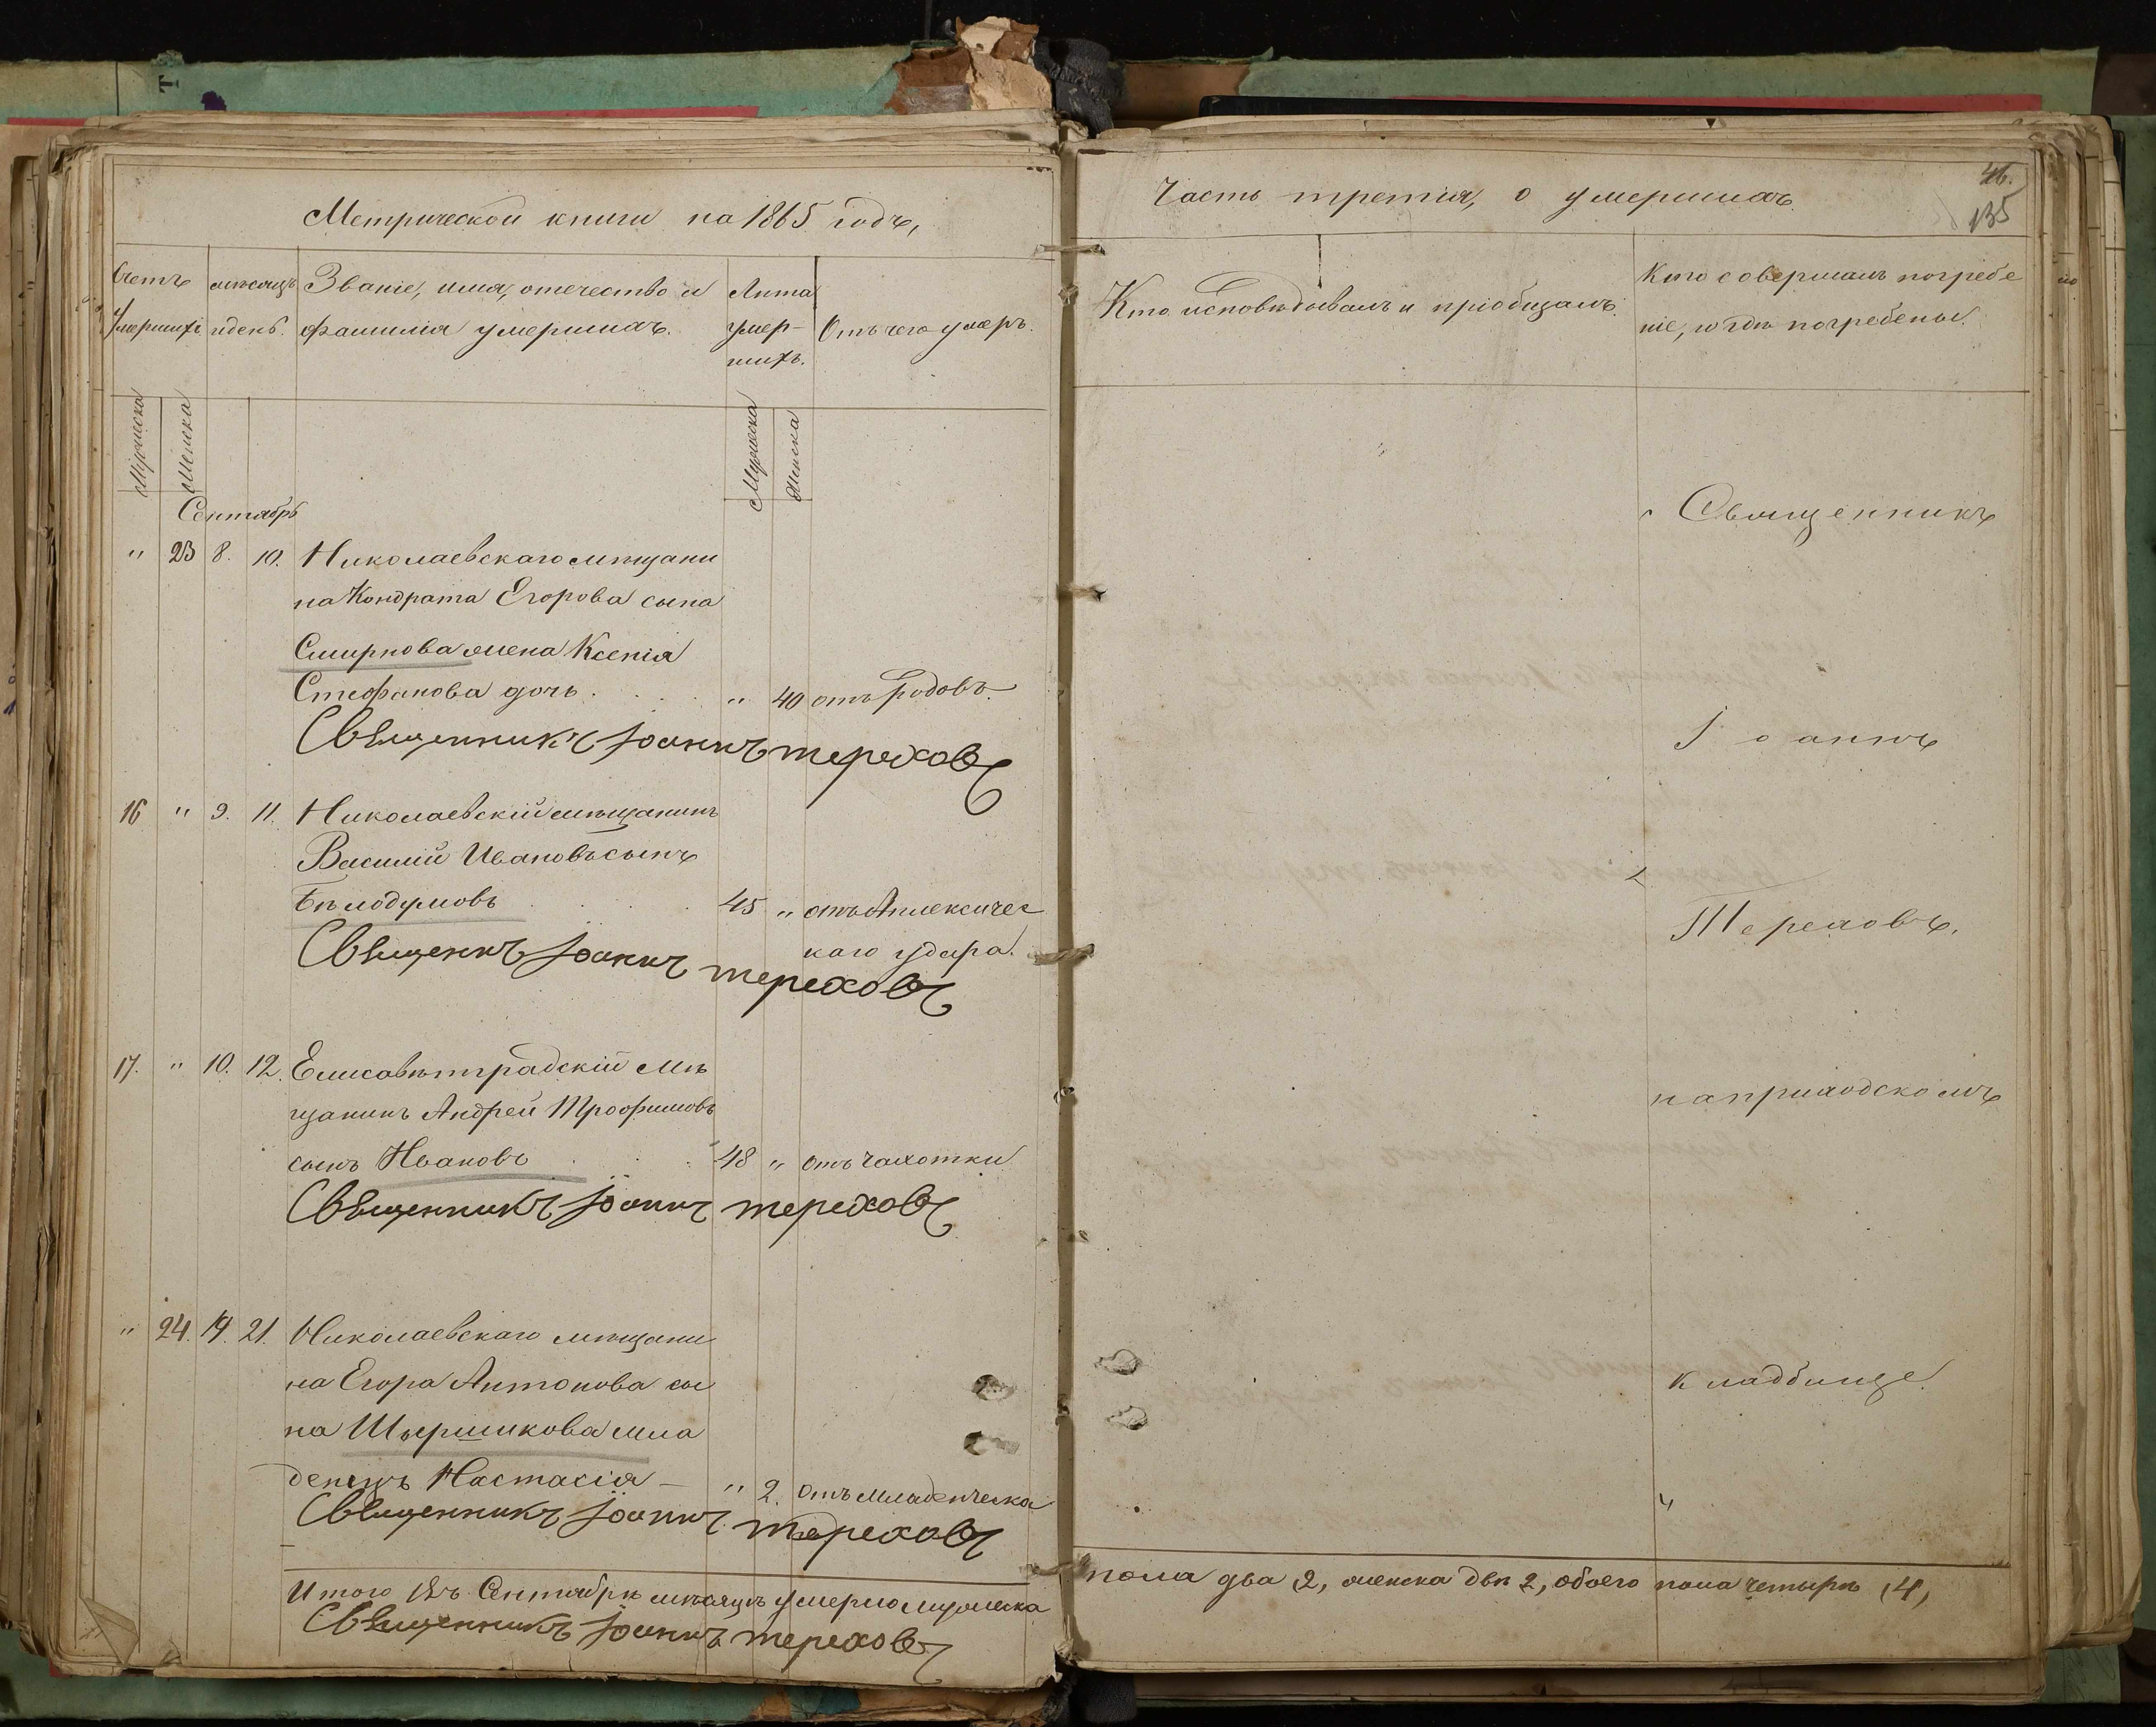 Метрической книги на 1865 годъ,
Счетъ умершихъ.
мѣсяцъ и день.
Званіе, имя, отечество и
фамилія умершихъ.
Лѣта
умер-
шихъ.
Отъ чего умеръ.
Мужеска
Женска
Мужеска
Женска
Сентябрь
" 23 8. 10. Николаевскаго мѣщани
на Кондрата Егорова сына
Смирнова жена Ксенія
Стефанова дочь . . . . " 40 отъ родовъ.
Священникъ Іоаннъ Тереховъ
16 " 9. 11. Николаевскій мѣщанинъ
Василій Ивановъ сынъ
Бѣлодумовъ . . . . 45 " отъ Аплексичес
каго удара.
Священникъ Іоаннъ Тереховъ
17. " 10. 12. Елисаветградскій мѣ
щанинъ Андрей Трофимовъ
сынъ Ивановъ . . . 48 " отъ чахотки
Священникъ Іоаннъ Тереховъ
" 24. 19. 21. Николаевскаго мѣщани
на Егора Антонова сы
на Шершикова мла
денецъ Настасія - " 2. отъ младенческа
Священникъ Іоаннъ Тереховъ
Итого въ Сентябрѣ мѣсяцѣ умерло мужеска
Священникъ Іоаннъ Тереховъ
Часть третія, о умершихъ.
46.
135
Кто исповѣдывалъ и пріобщалъ.
Кто совершалъ погребе
ніе, и гдѣ погребены.
Священникъ
Іоаннъ
Тереховъ,
на приходскомъ
кладбище.
пола два 2, женска двѣ 2, обоего пола четыре (4,